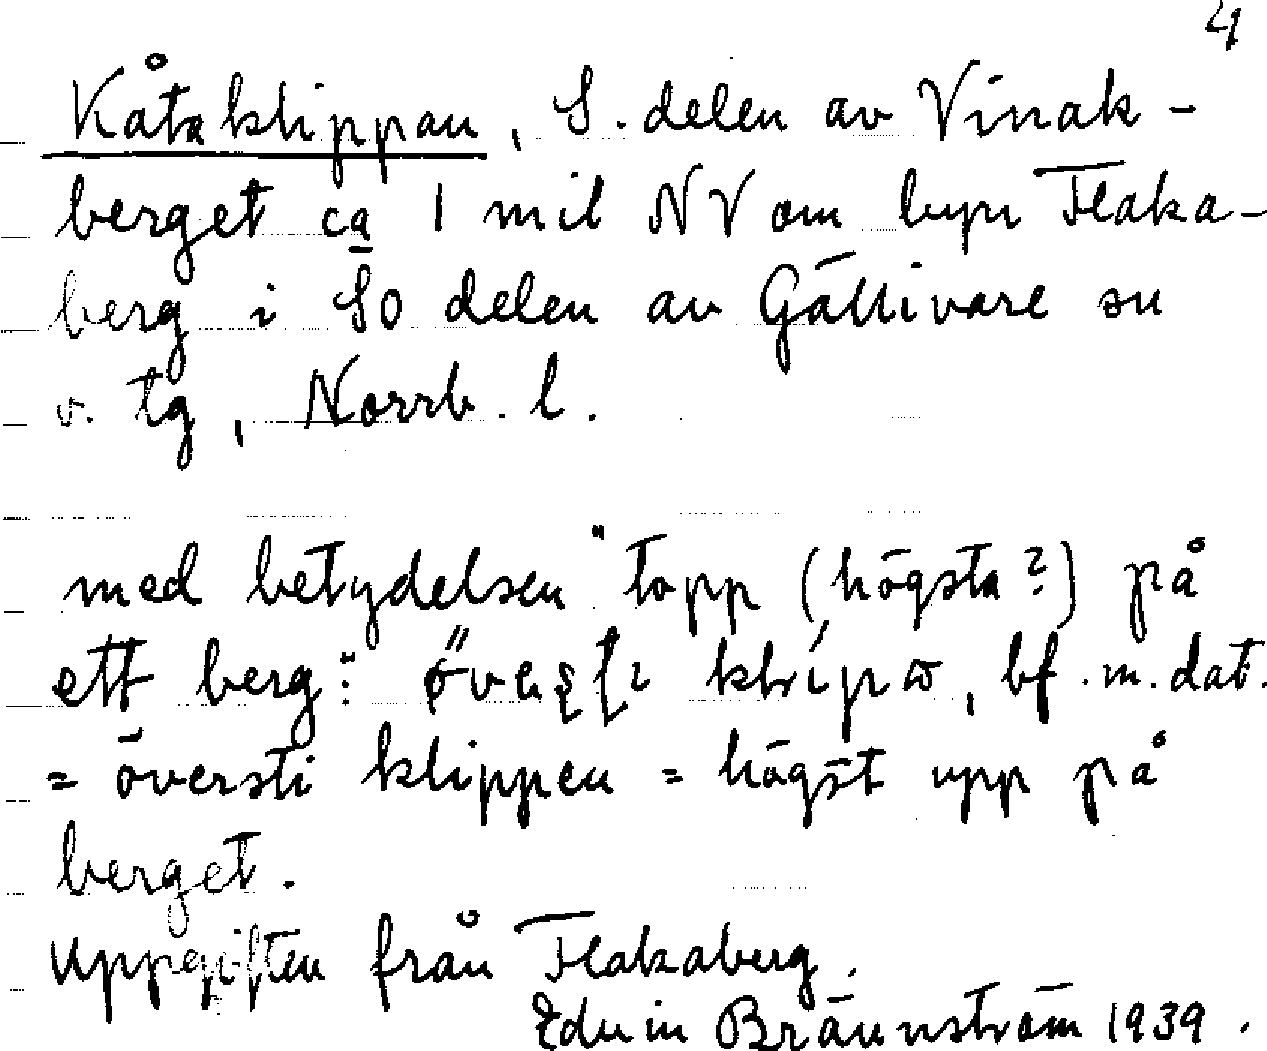 4
Kåtaklippan, S. delen av Vinak-
berget ca 1 mil NV om byn Flaka-
berg i SO delen av Gällivare sn
o. tg, Norrb. l.
med betydelsen "topp (högsta?) på
ett berg": klípω, bf. m. dat.
= översti klippen = högst upp på
berget.
Uppgiften från Flakaberg.
Edvin Brännström 1939.